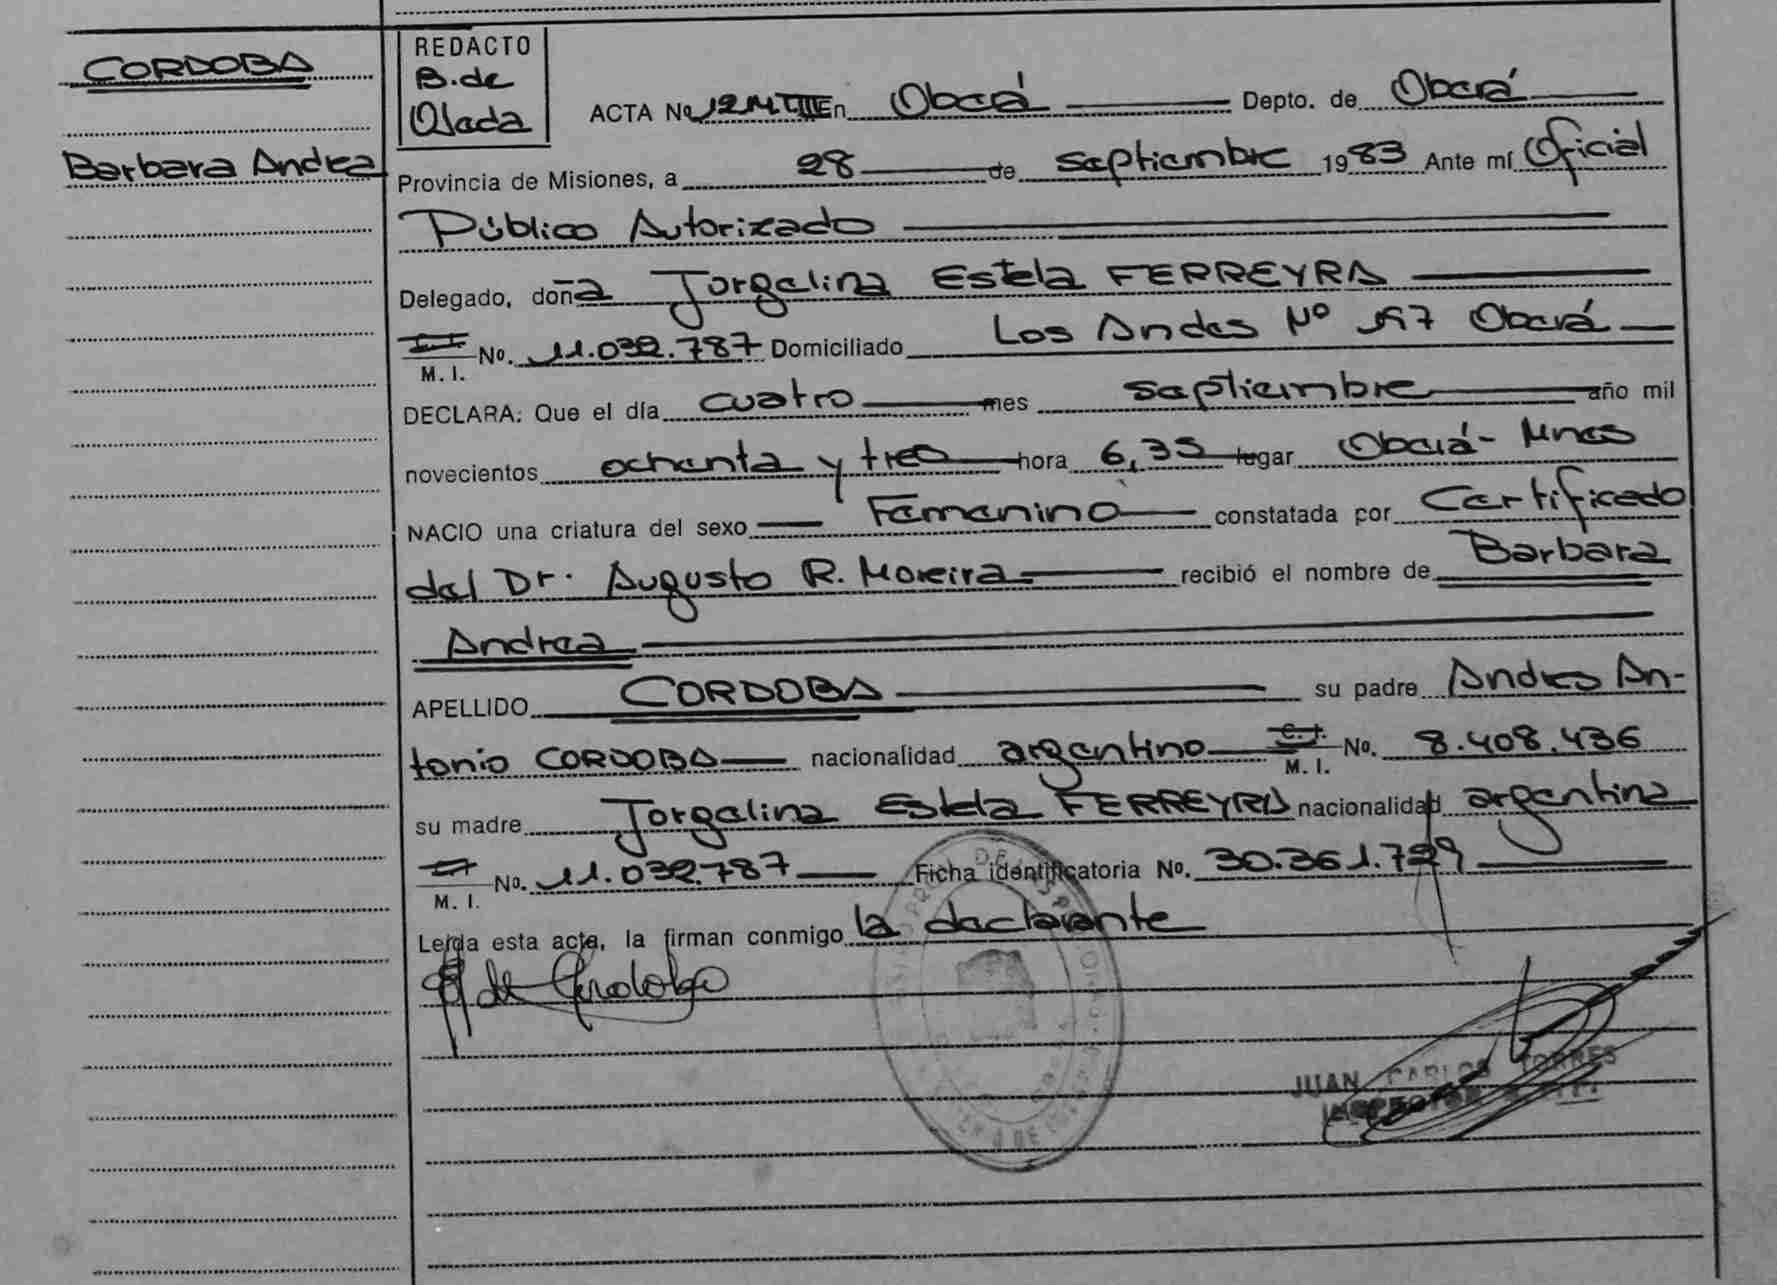 CORDOBA
Barbara Andrea
REDACTO
B. de
Olada
ACTA No 12M TIII En Oberá Depto. de Oberá
Provincia de Misiones, a 28 de septiembre 1983 Ante mí Oficial
Público Autorizado
Delegado, doña Jorgelina Estela FERREYRA
M. I. No. 11.032.787 Domiciliado Los Andes Nº 197 Oberá
DECLARA: Que el día cuatro mes septiembre año mil
novecientos ochenta y tres hora 6,35 lugar Oberá - Mnes
NACIO una criatura del sexo Femenino constatada por Certificado
del Dr. Augusto R. Moreira recibió el nombre de Barbara
Andrea
APELLIDO CORDOBA su padre Andres An-
tonio CORDOBA nacionalidad argentino C. I. M. I. No. 8.408.436
su madre Jorgelina Estela FERREYRA nacionalidad argentina
M. I. No. 11.032.787 Ficha identificatoria No. 30.361.729
Leída esta acta, la firman conmigo la declarante
JUAN CARLOS TORRES
INSPECTOR